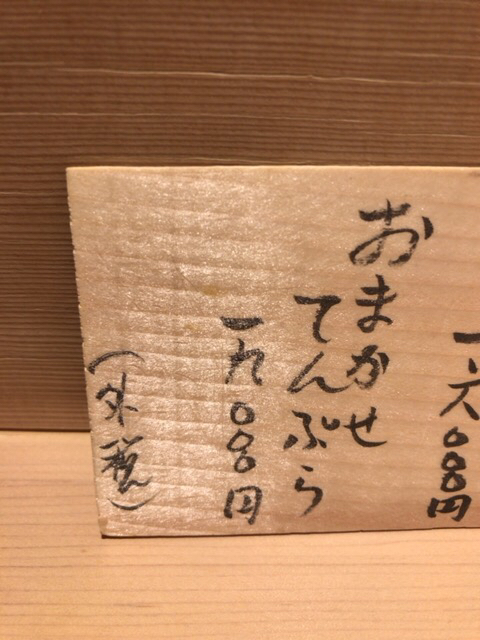 一六〇〇〇円
おまかせ
てんぷら
一九〇〇〇円
(外税)